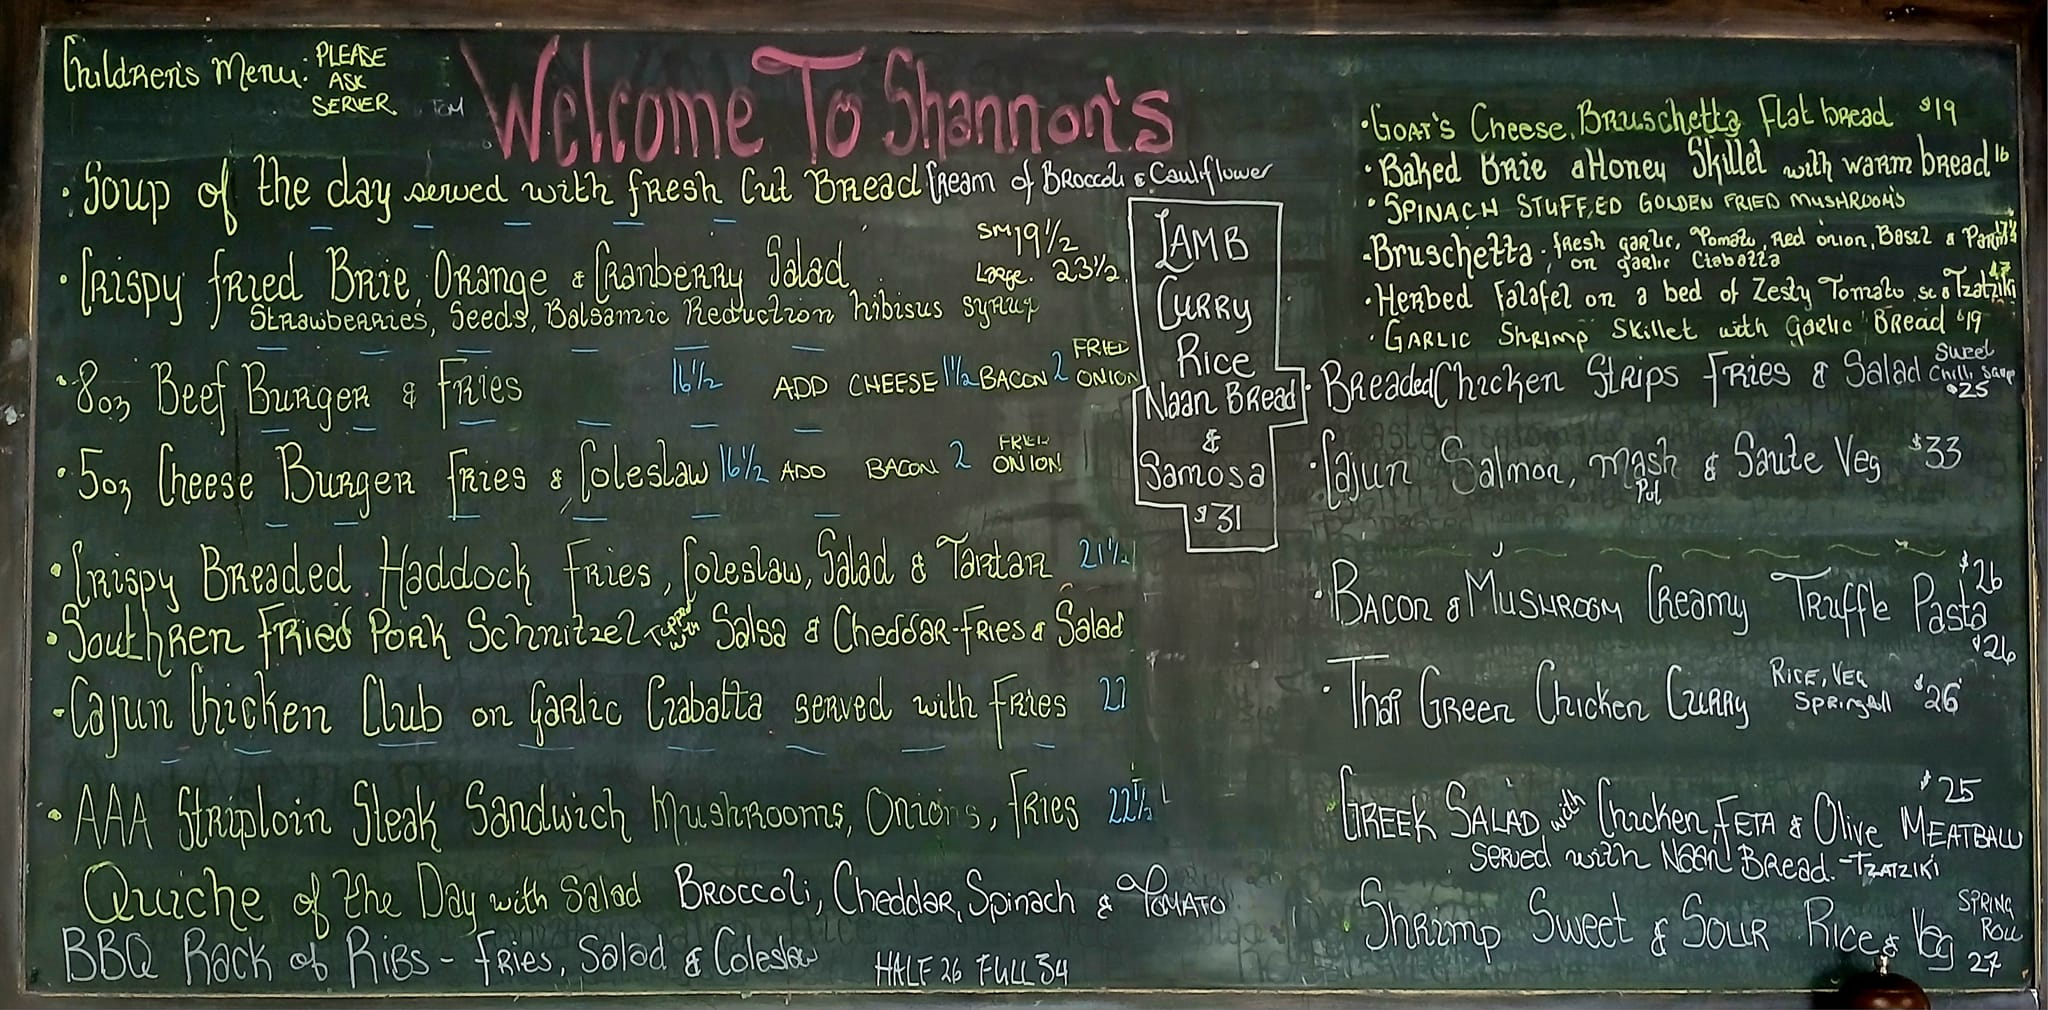 Children's Menu: PLEASE
ASK
SERVER
TOM
Welcome To Shannon's
• Soup of the day served with fresh Cut Bread Cream of Broccoli & Cauliflower
• Crispy fried Brie, Orange & Cranberry Salad SM 19 1/2
Large. 23 1/2
Strawberries, Seeds, Balsamic Reduction hibisus syrup
• 8oz Beef Burger & Fries 16 1/2 ADD CHEESE 1 1/2 BACON 2 FRIED ONION
• 5oz Cheese Burger Fries & Coleslaw 16 1/2 ADD BACON 2 FRIED ONION
• Crispy Breaded Haddock Fries, Coleslaw, Salad & Tartar 21 1/2
• Southren Fried Pork Schnitzel Topped with Salsa & Cheddar-Fries & Salad
- Cajun Chicken Club on Garlic Ciabatta served with Fries 22
• AAA Striploin Steak Sandwich Mushrooms, Onions, Fries 22 1/2
Quiche of the Day with Salad Broccoli, Cheddar, Spinach & Tomato
BBQ Rack of Ribs - Fries, Salad & Coleslaw HALF 26 FULL 34
LAMB
CURRY
Rice
Naan Bread
&
Samosa
$31
• Goat's Cheese, Bruschetta Flat bread $19
• Baked Brie & Honey Skillet with warm bread 16
• SPINACH STUFFED GOLDEN FRIED MUSHROOMS
• Bruschetta - fresh garlic, Tomato, Red onion, Basil & Parm
on garlic Ciabatta
• Herbed Falafel on a bed of Zesty Tomato Sc & Tzatziki
• GARLIC Shrimp Skillet with Garlic Bread $19
• Breaded Chicken Strips Fries & Salad Sweet
Chilli Sauce
$25
• Cajun Salmon, Mash & Saute Veg $33
Pot
• Bacon & Mushroom Creamy Truffle Pasta $26
$26
• Thai Green Chicken Curry Rice, Veg
Springroll $26
Greek Salad with Chicken, Feta & Olive Meatball $25
served with Naan Bread - Tzatziki
• Shrimp Sweet & Sour Rice & Veg SPRING
ROLL
27